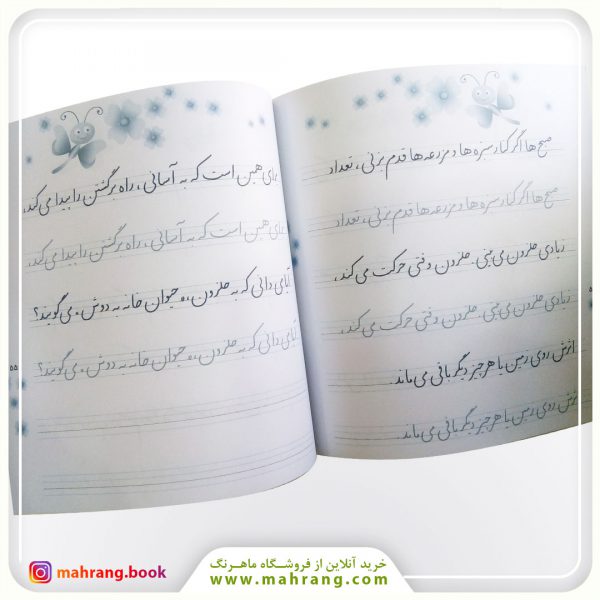 صبح ها اگر کنار سبزه ها و مزرعه ها قدم بزنی، تعداد
صبح ها اگر کنار سبزه ها و مزرعه ها قدم بزنی، تعداد
زیادی حلزون می بینی. حلزون وقتی حرکت می کند،
زیادی حلزون می بینی. حلزون وقتی حرکت می کند،
اثرش روی زمین یا هر چیز دیگر باقی می ماند.
اثرش روی زمین یا هر چیز دیگر باقی می ماند.
برای همین است که به آسانی، راه برگشتن را پیدا می کند.
برای همین است که به آسانی، راه برگشتن را پیدا می کند.
آیا می دانی که به حلزون، «حیوان خانه به دوش» می گویند؟
آیا می دانی که به حلزون، «حیوان خانه به دوش» می گویند؟
خرید آنلاین از فروشگاه ماهرنگ
www.mahrang.com
mahrang.book